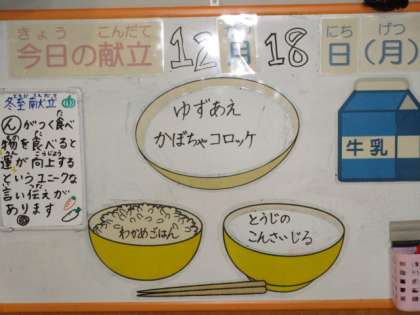 きょう こんだて にち げつ
今日の献立 12月18日(月)
とうじこんだて
冬至献立
んがつく食べ
物を食べると
運が向上する
というユニークな
言い伝えが
あります
ゆずあえ
かぼちゃコロッケ
牛乳
わかめごはん
とうじの
こんさいじる